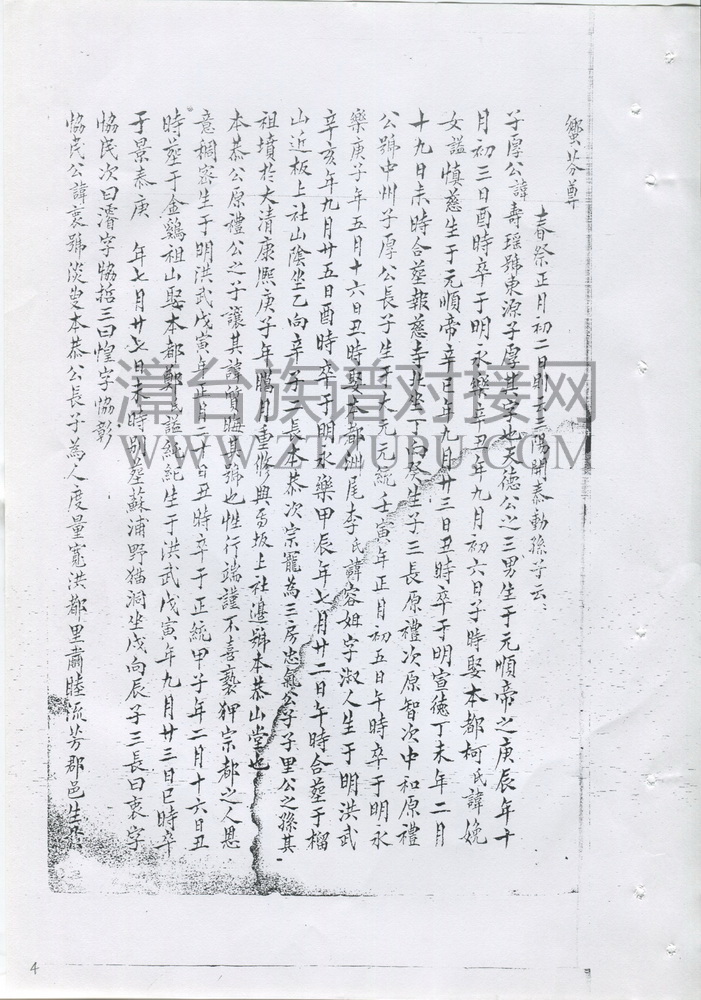 蟹芬尊
春祭正月初二日則云三陽開泰動孫子云
子厚公諱壽瑶號東源子厚其字也天德公之三男生于元順帝之庚辰年十
月初三日酉時卒于明永樂辛丑年九月初六日子時娶本都柯氏諱娩
女謚慎慈生于元順帝辛巳年九月廿三日丑時卒于明宣德丁未年二月
十九日未時合塟報慈寺北坐丁向癸生子三長原禮次原智次中和原禮
公號中州子厚公長子生于大元元統壬寅年正月初五日午時卒于明永
樂庚子年五月十六日丑時娶本都洲尾李氏諱容姐字淑人生于明洪武
辛亥年九月廿五日酉時卒于明永樂甲辰年七月廿二日午時合塟于榴
山近板上社山陰坐乙向辛子二長本恭次宗寵為三房忠氣公子子里公之孫其
祖墳於大清康熈庚子年臈月重修與寄坂上社邉號本恭山堂也
本恭公原禮公之子讓其諱質晦其號也性行端謹不喜褻狎宗都之人恩
意稠宻生于明洪武戊寅年正月二十日丑時卒于正統甲子年二月十六日丑
時塟于金鷄祖山娶本都鄭氏謚純純生于洪武戊寅年九月廿三日巳時卒
于景泰庚 年七月廿七日未時别塟蘇浦野猫洞坐戌向辰子三長曰衷字
恊民次曰濬字恊哲三曰惶字恊彰
恊民公諱衷號淡叟本恭公長子為人度量寬洪都里肅睦流芳郡邑生於
漳台族谱对接网
WWW.ZTZUPU.COM
4